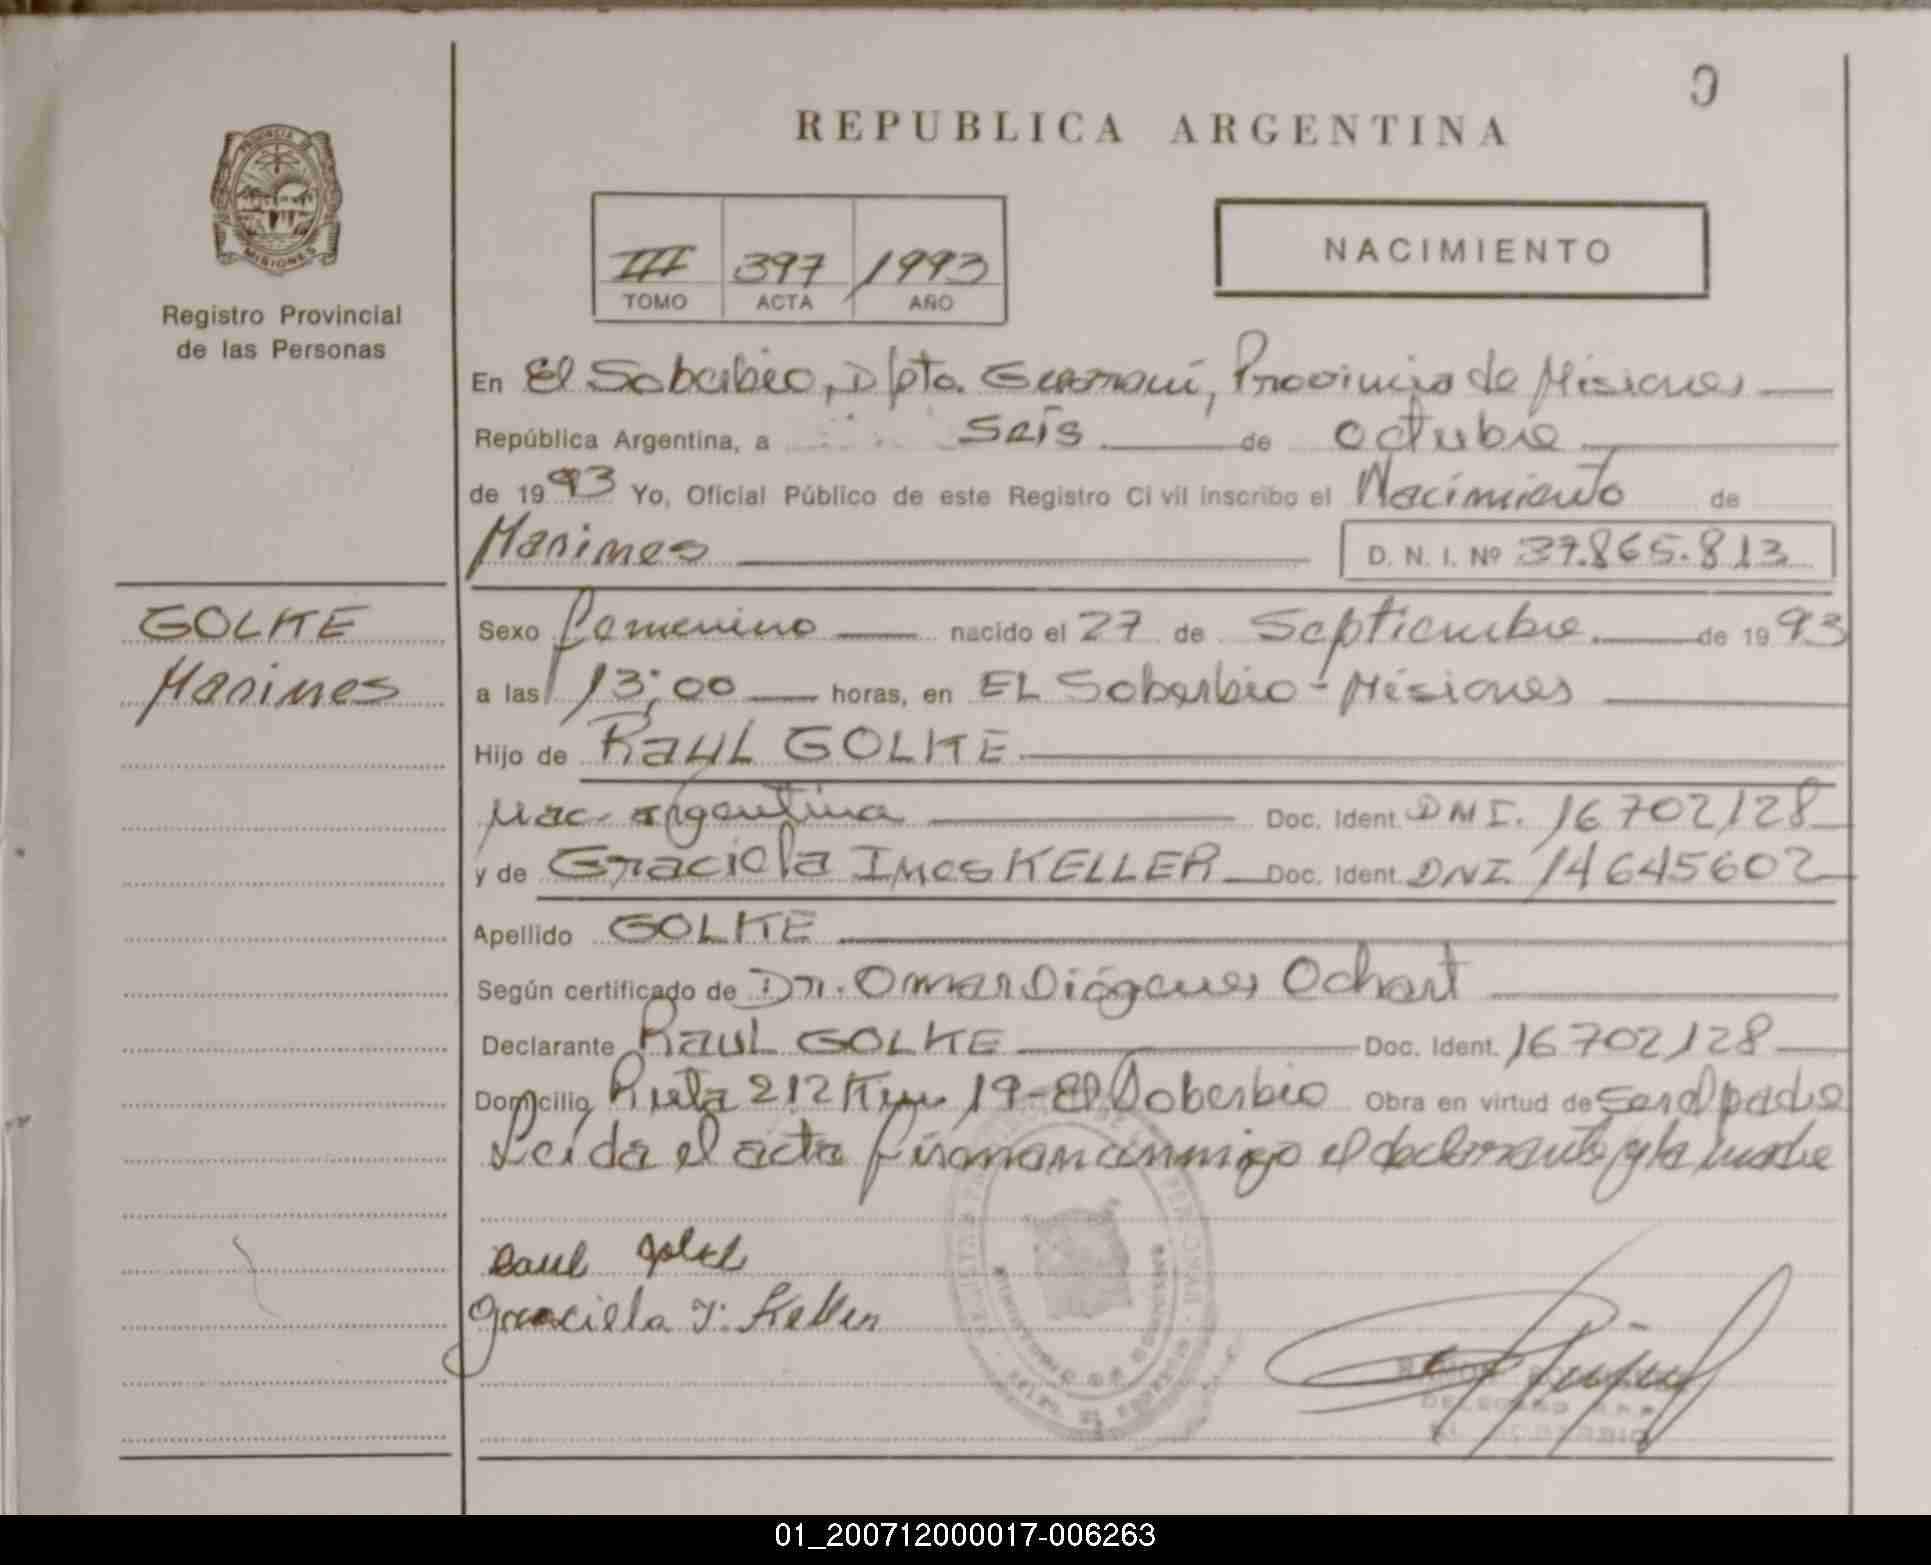 REPUBLICA ARGENTINA
PROVINCIA DE
MISIONES
Registro Provincial
de las Personas
III 397 1993
TOMO ACTA AÑO
NACIMIENTO
En El Soberbio, Dpto. Guaraní, Provincia de Misiones
República Argentina, a seis de octubre
de 1993 Yo, Oficial Público de este Registro Civil inscribo el Nacimiento de
Marines D. N. I. Nº 37.865.813
GOLKE
Marines
Sexo femenino nacido el 27 de Septiembre de 1993
a las 13:00 horas, en EL Soberbio - Misiones
Hijo de RAUL GOLKE
Nac. argentina Doc. Ident. DNI. 16702128
y de Graciela Ines KELLER Doc. Ident. DNI. 14645602
Apellido GOLKE
Según certificado de Dr. Omar Diógenes Ochart
Declarante RAUL GOLKE Doc. Ident. 16702128
Domicilio Ruta 212 Km 19 - El Soberbio Obra en virtud de ser el padre
Leída el acta firman conmigo el declarante y la madre
Raul
Graciela I. Keller
DELEGADO R.P.P.
EL SOBERBIO
01_200712000017-006263